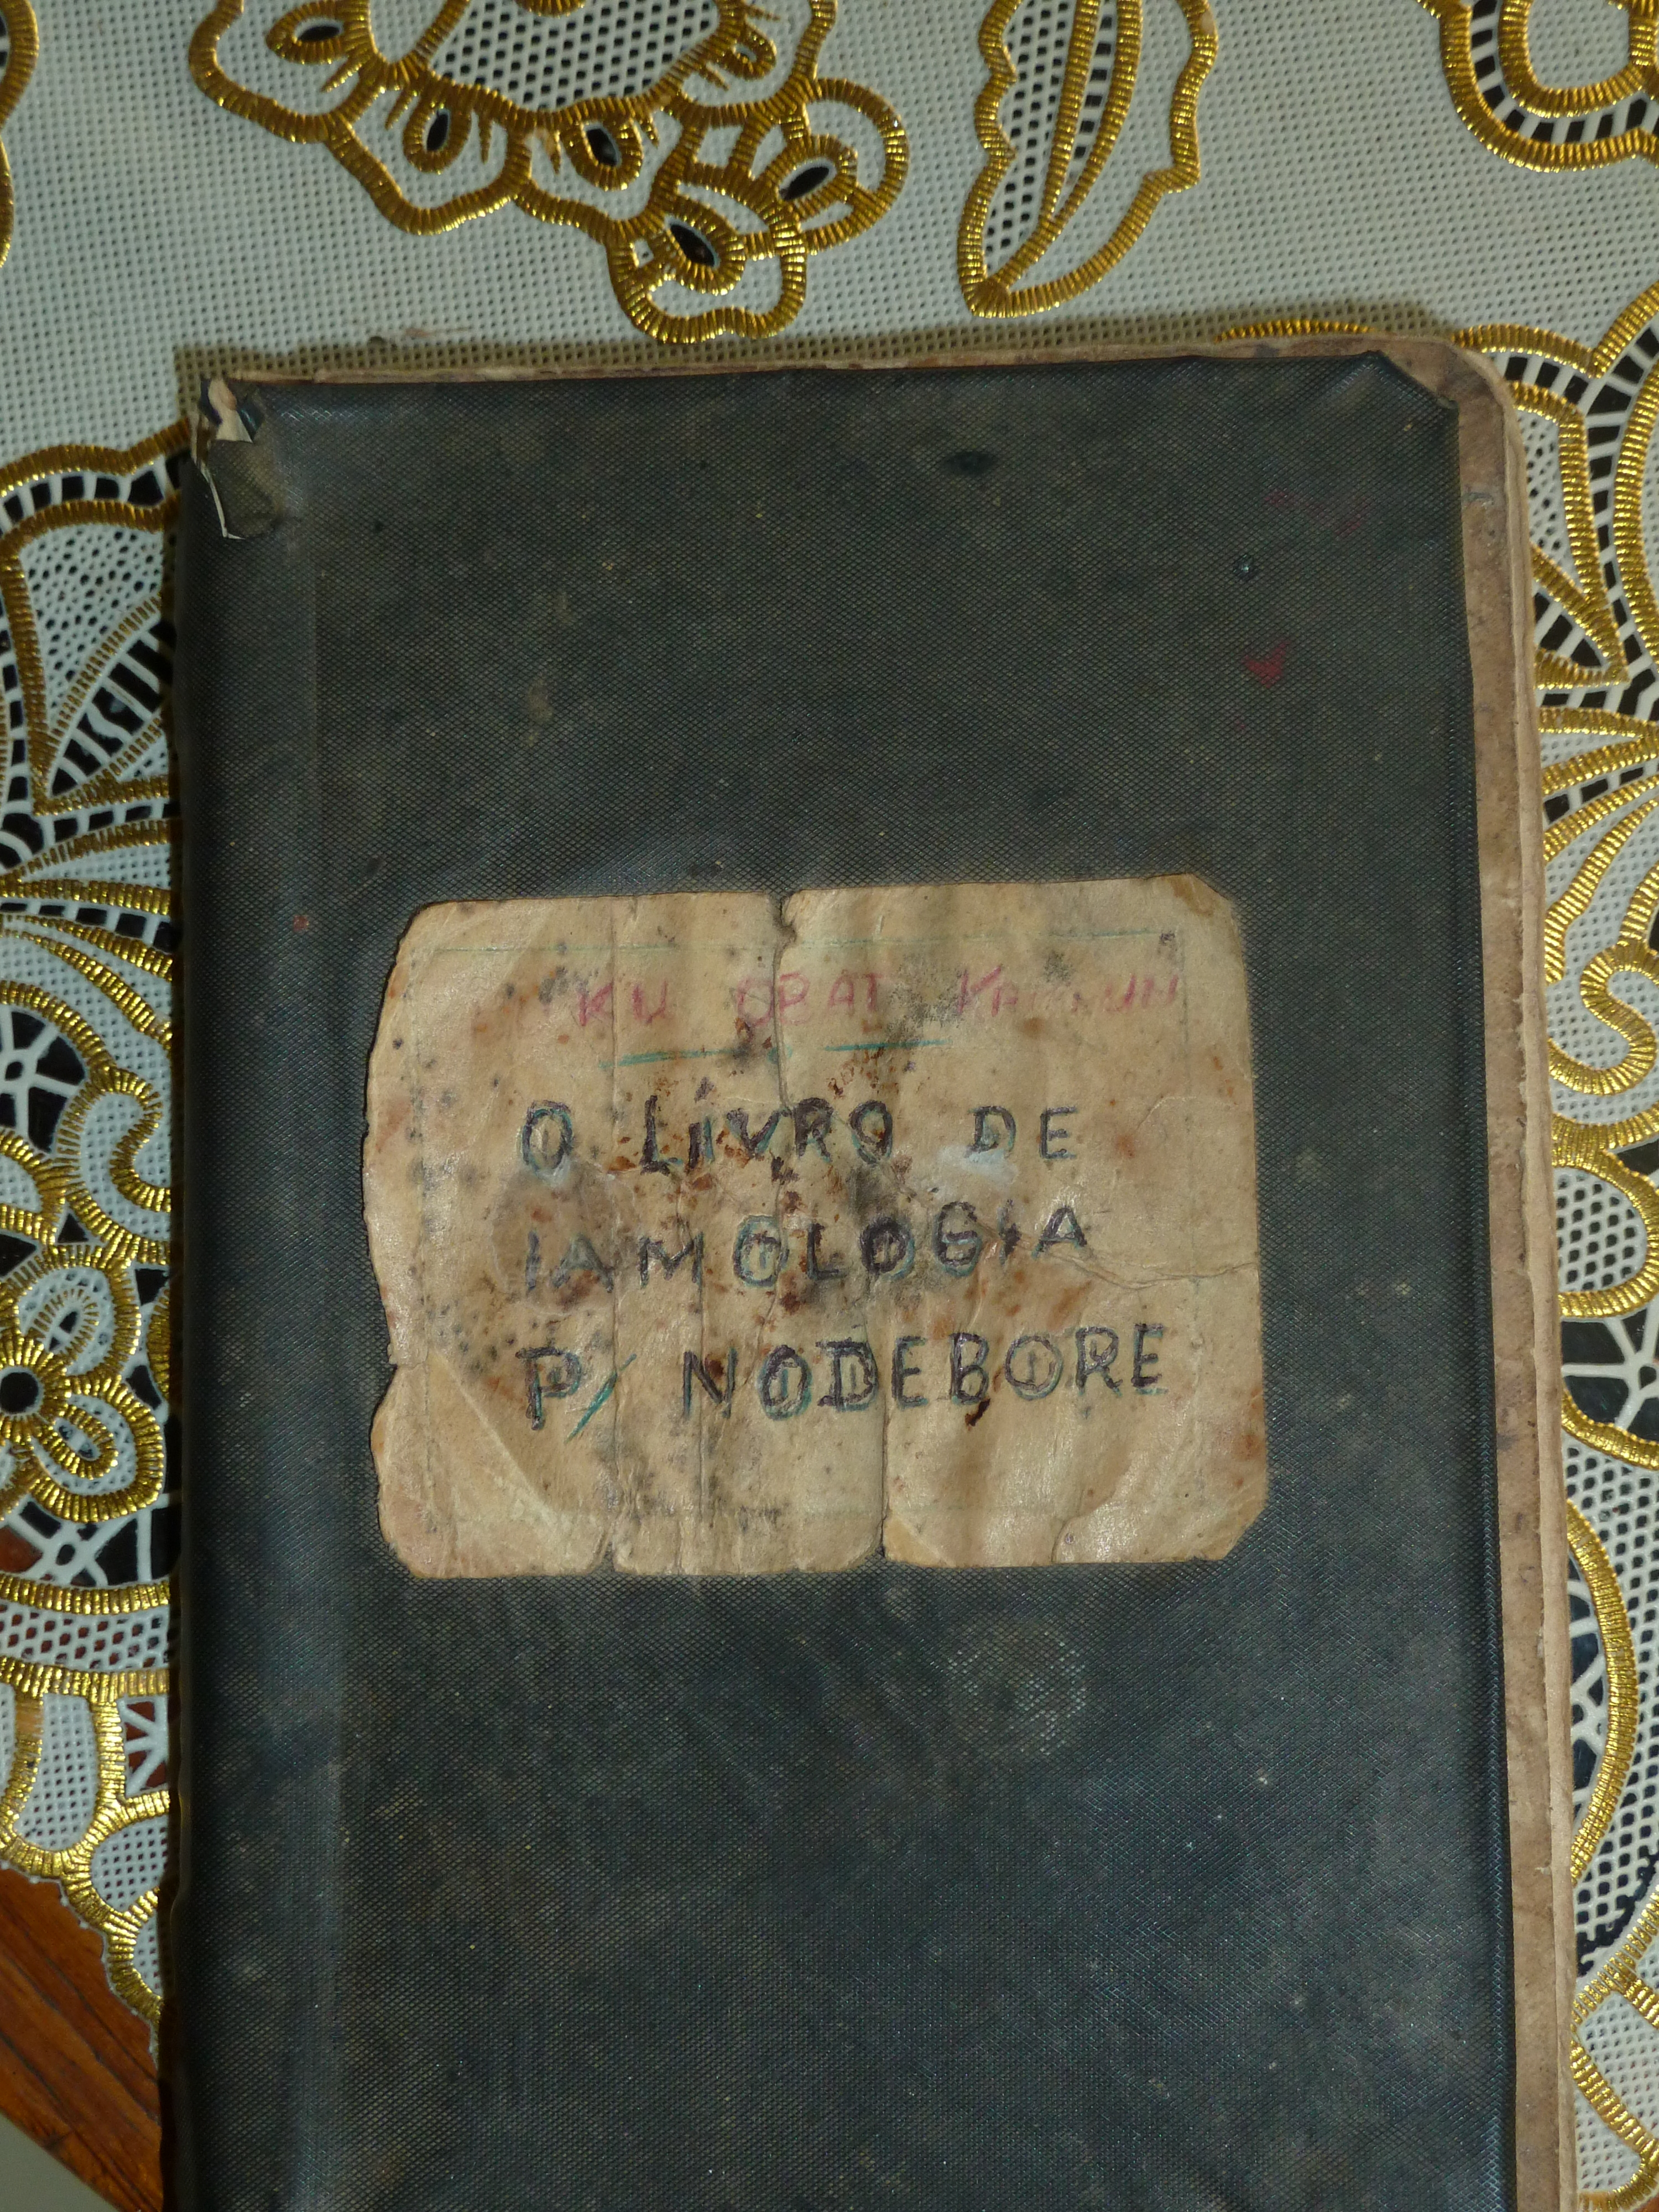 KU OBAT
O LIVRO DE
IAMOLOGIA
P/ NODEBORE